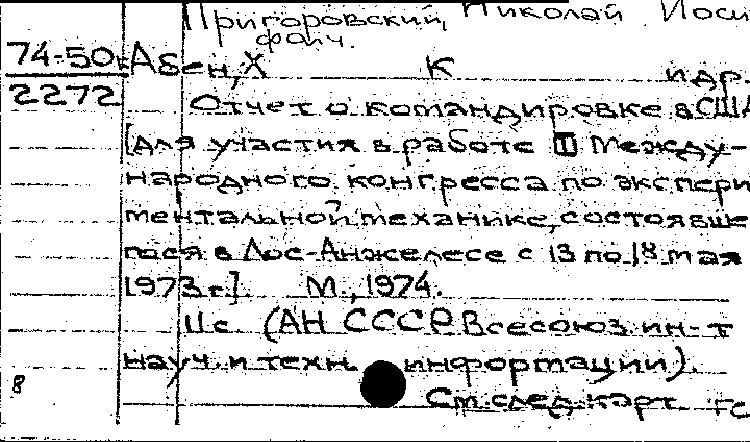 Пригоровский, Николай Иоси
фович.
74-50 Абен, Х К и др.
2272
Отчет о командировке в США
[для участия в работе III Между-
народного конгресса по экспери
ментальной механике, состоявше
гося в Лос-Анжелесе с 13 по 18 мая
1973 г.]. М., 1974.
11 с. (АН СССР Всесоюз. ин-т
науч. и техн. информации).
8 См. след. карт. ГС